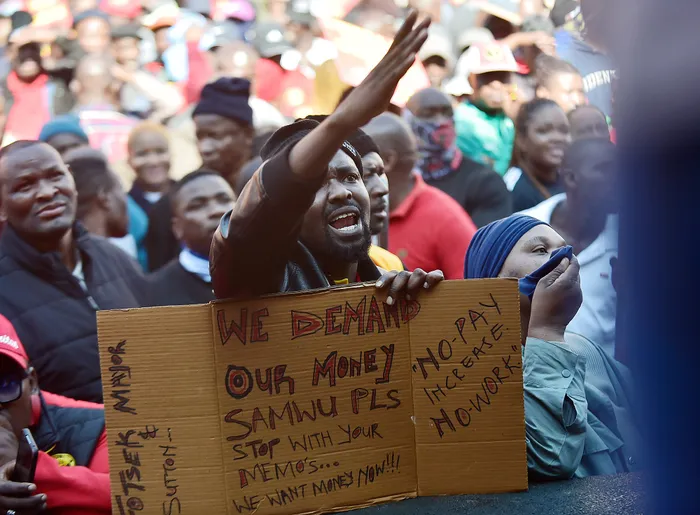 TOTSEK MAYOR
& SUTTON...
WE DEMAND
OUR MONEY
SAMWU PLS
STOP WITH YOUR
MEMO'S...
WE WANT MONEY NOW!!!
"NO-PAY
INCREASE
NO-WORK"
IDENT